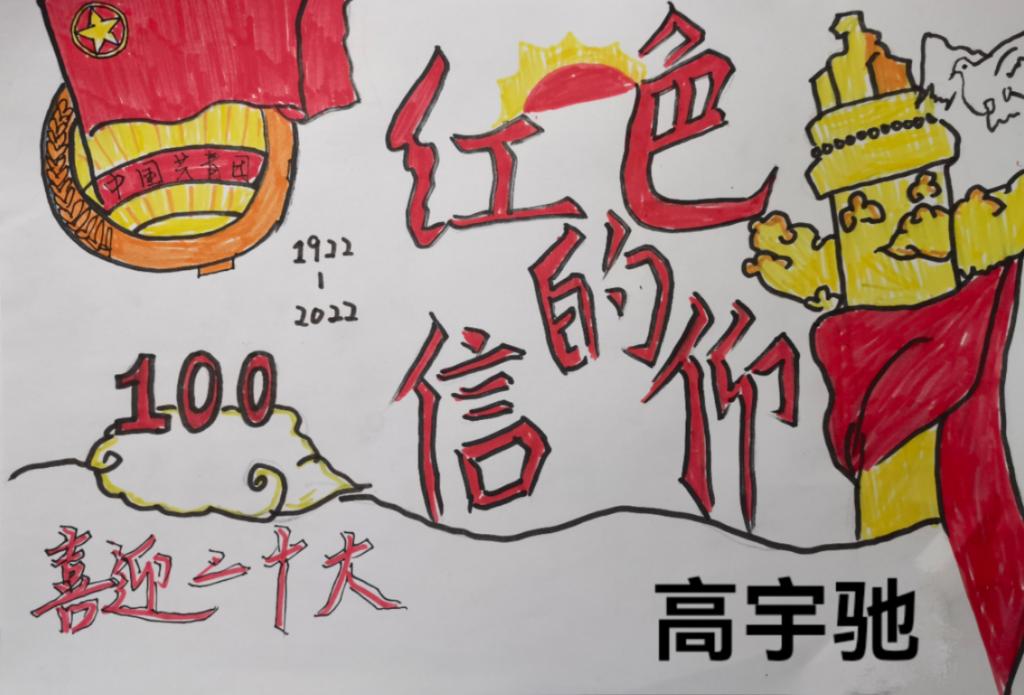 中国共青团
1922
-
2022
100
红色
的
信仰
喜迎二十大
高宇驰